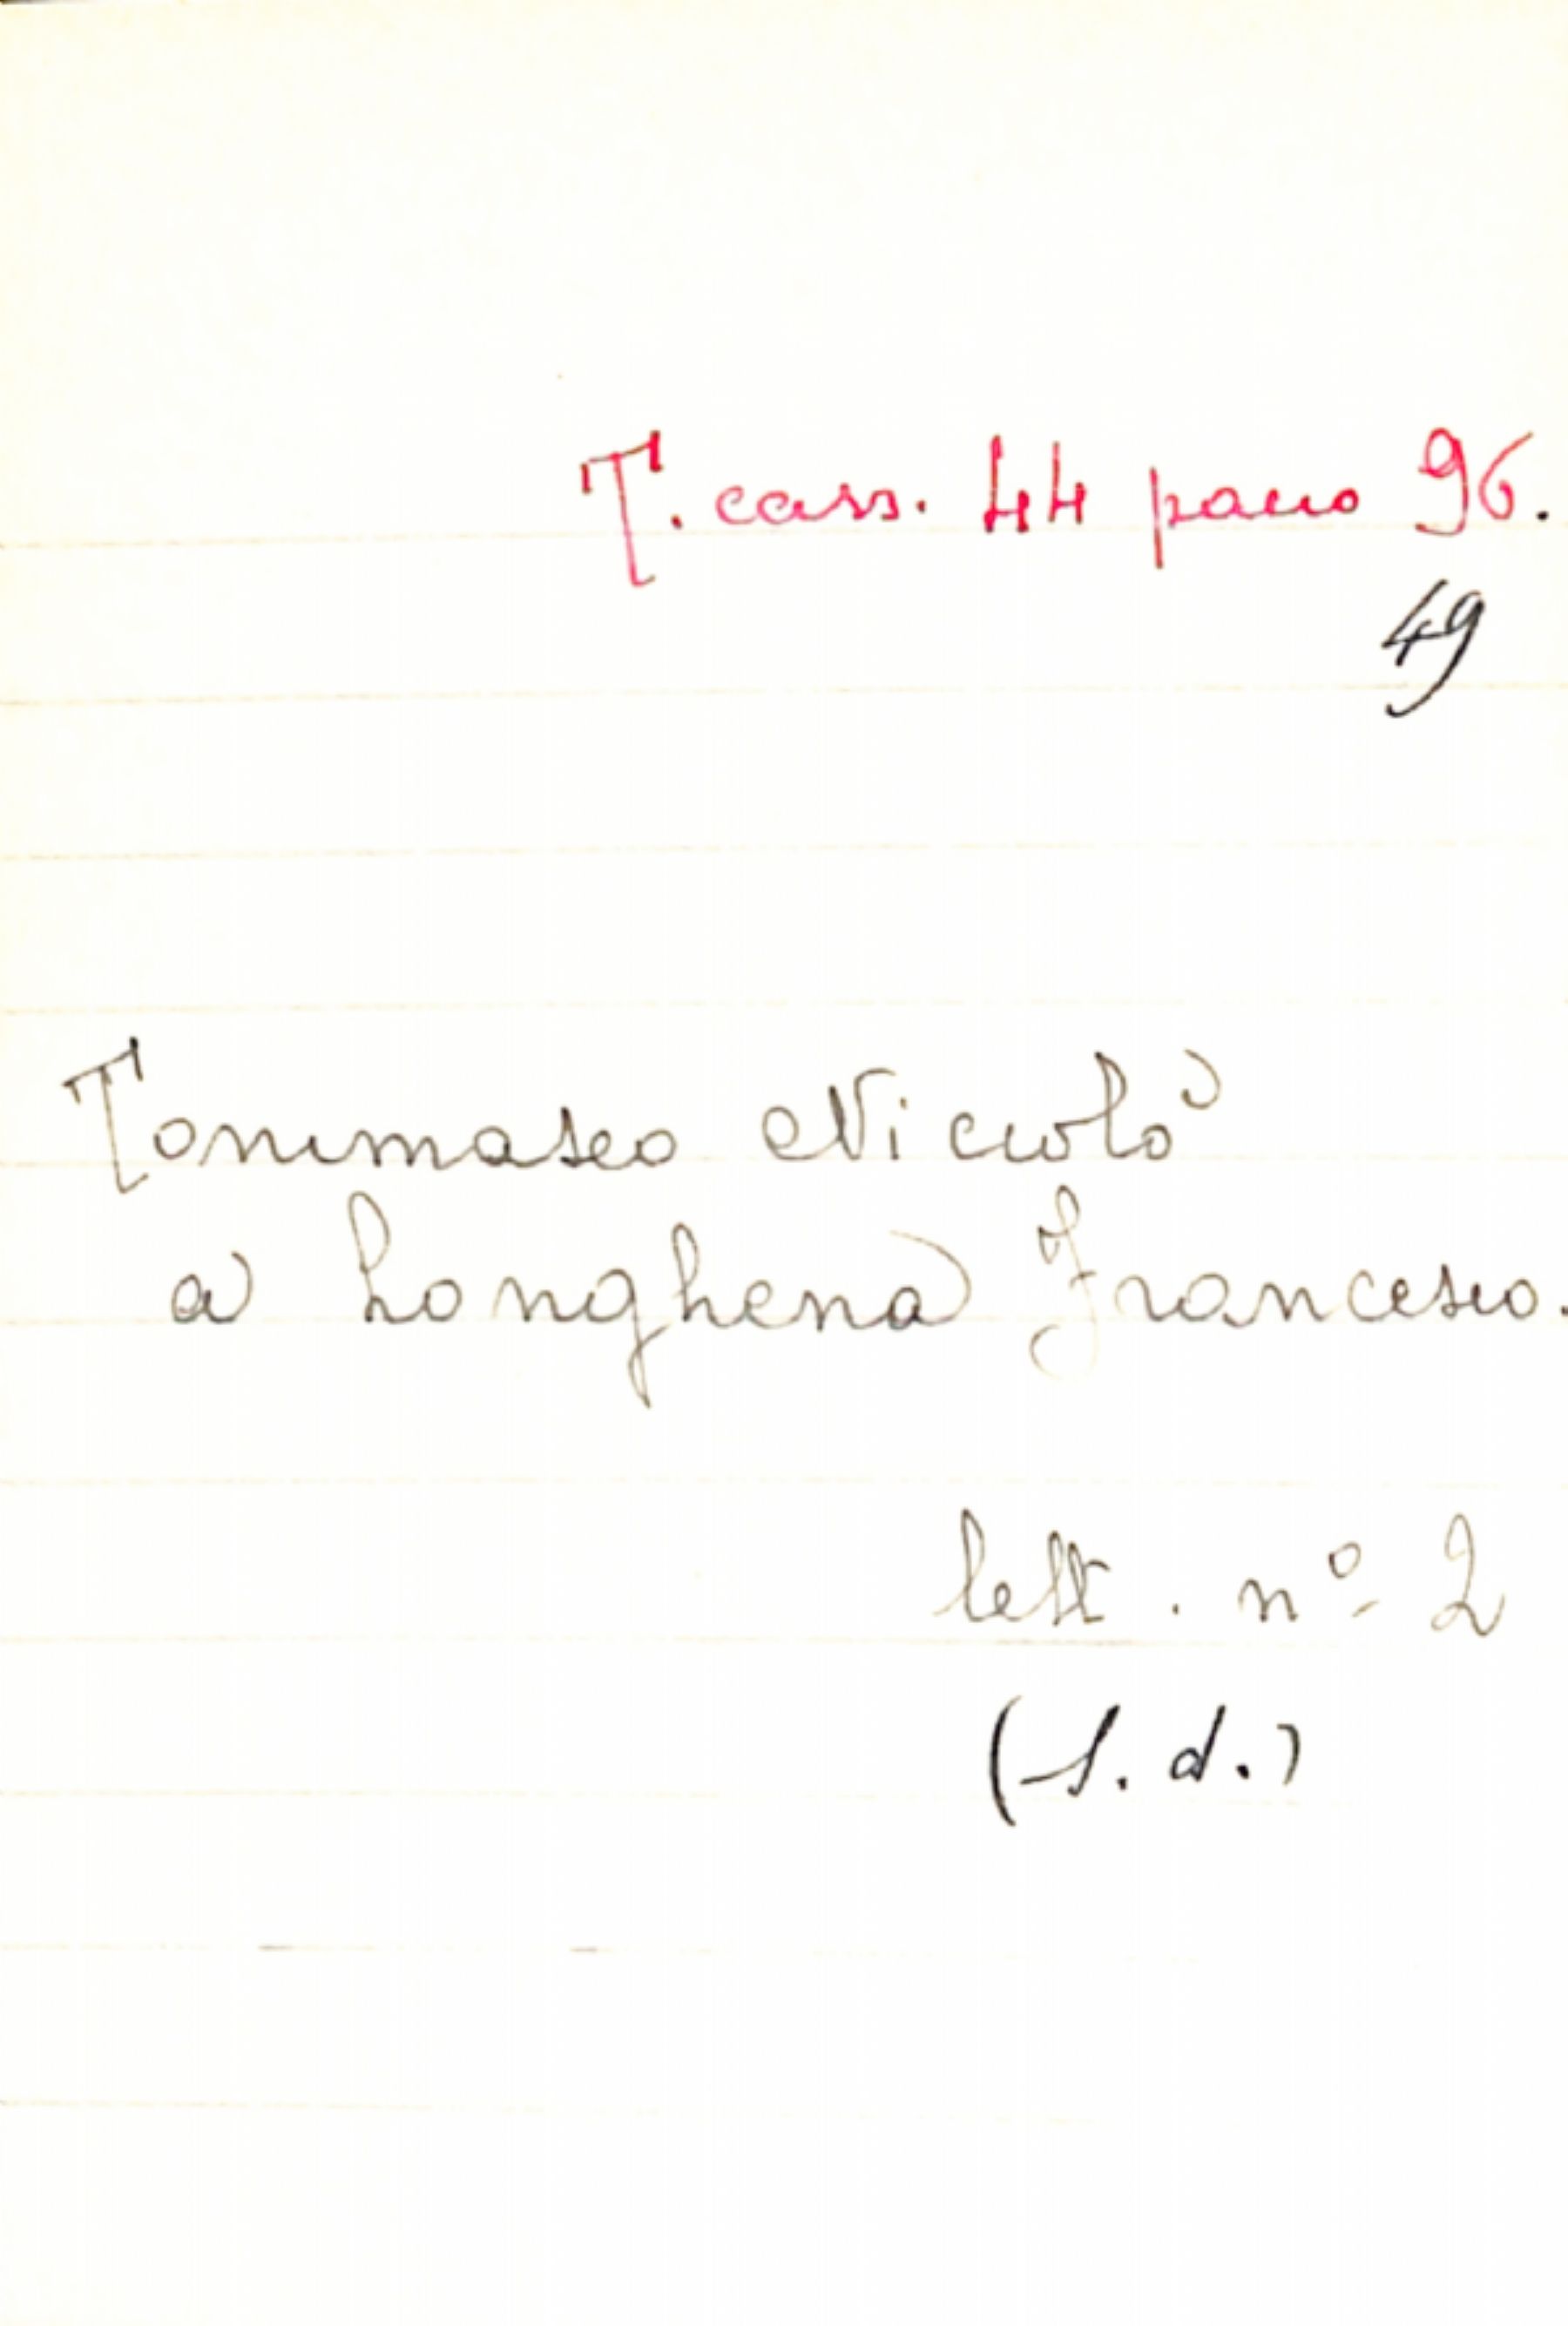 T. cass. 44 pacco 96.
49
Tommaseo Niccolò
a Longhena Francesco.
lett. nº 2
(s.d.)